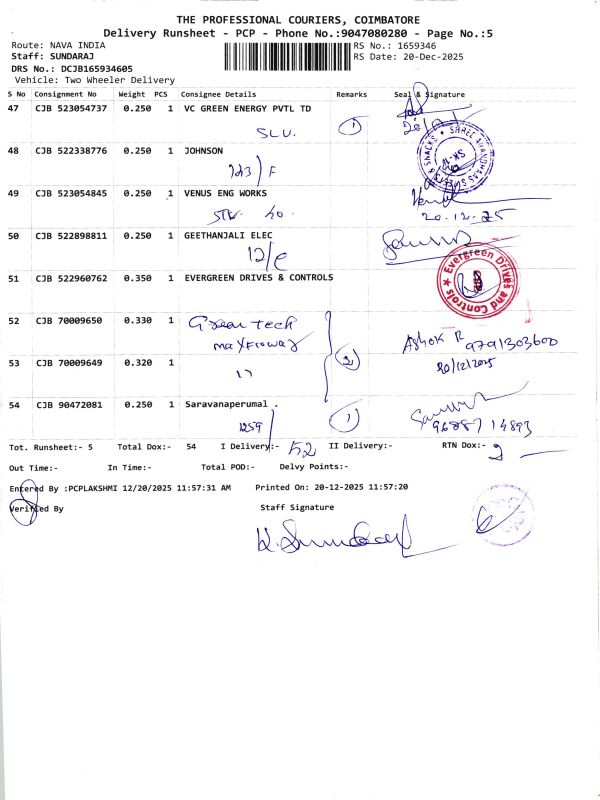 THE PROFESSIONAL COURIERS, COIMBATORE
Delivery Runsheet - PCP - Phone No.:9047080280 - Page No.:5
Route: NAVA INDIA
RS No.: 1659346
Staff: SUNDARAJ
RS Date: 20-Dec-2025
DRS No.: DCJB165934605
Vehicle: Two Wheeler Delivery
S No Consignment No Weight PCS Consignee Details Remarks Seal & Signature
47 CJB 523054737 0.250 1 VC GREEN ENERGY PVTL TD
1
48 CJB 522338776 0.250 1 JOHNSON
49 CJB 523054845 0.250 1 VENUS ENG WORKS
20.12.25
50 CJB 522898811 0.250 1 GEETHANJALI ELEC
12/e
51 CJB 522960762 0.350 1 EVERGREEN DRIVES & CONTROLS
Evergreen Drives and Controls
52 CJB 70009650 0.330 1 Green tech
Ashok R 9791303600
2
20/12/2025
53 CJB 70009649 0.320 1 "
54 CJB 90472081 0.250 1 Saravanaperumal .
1
1259
96887 14893
Tot. Runsheet:- 5 Total Dox:- 54 I Delivery:- 52 II Delivery:- RTN Dox:- 2
Out Time:- In Time:- Total POD:- Delvy Points:-
Entered By :PCPLAKSHMI 12/20/2025 11:57:31 AM Printed On: 20-12-2025 11:57:20
Verified By Staff Signature